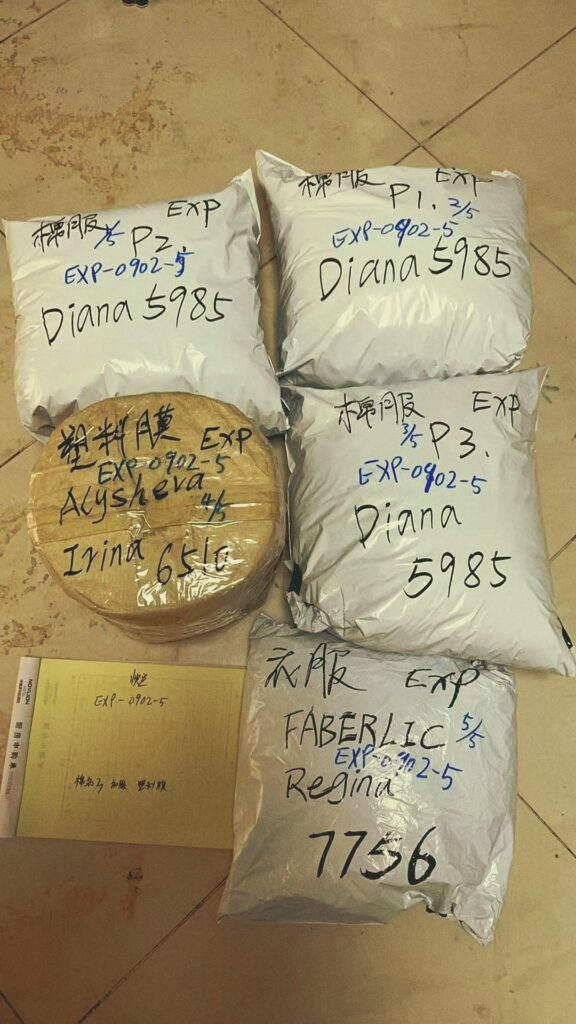 棉服 EXP
1/5 P2
EXP-0902-5
Diana 5985
棉服 EXP
P1. 2/5
EXP-0902-5
Diana 5985
塑料膜 EXP
EXP-0902-5
Alysheva
4/5
Irina 6510
棉服 EXP
3/5 P3.
EXP-0902-5
Diana
5985
衣服 EXP
FABERLIC 5/5
EXP-0902-5
Regina
7756
EXP-0902-5
塑料膜